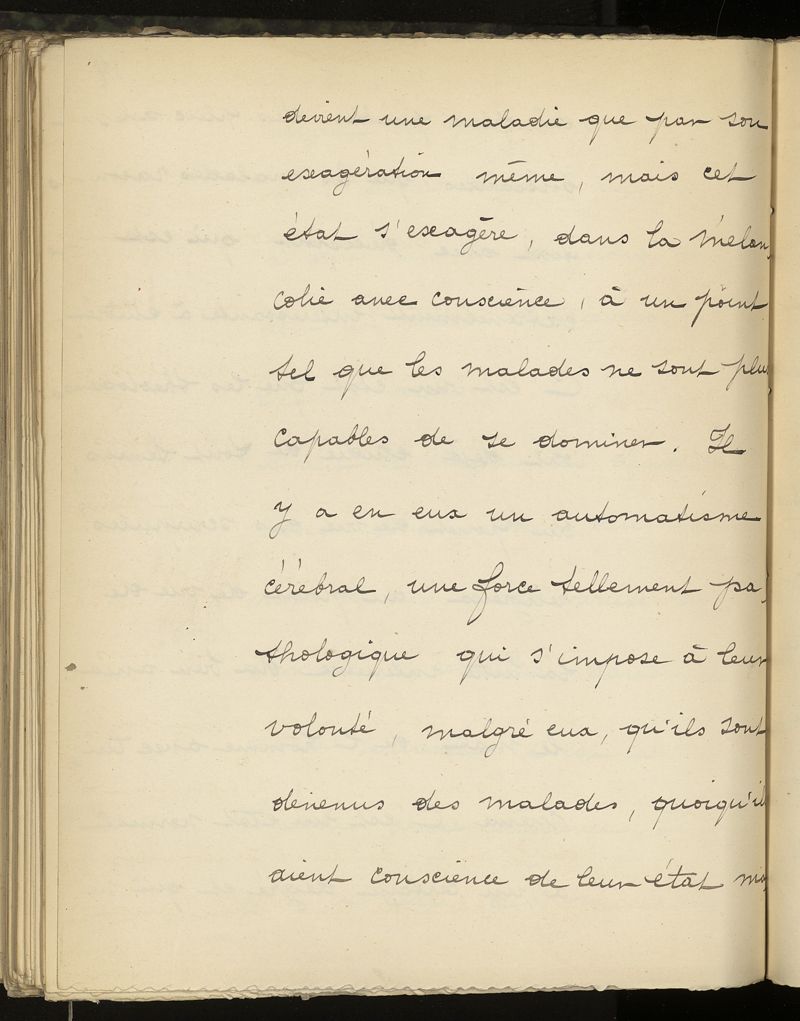 devient une maladie que par son
exagération même, mais cet
état s'exagère, dans la mélan
colie avec conscience, à un point
tel que les malades ne sont plu
capables de se dominer. Il
y a en eux un automatisme
cérébral, une force tellement pa
thologique qui s'impose à leur
volonté, malgré eux, qu'ils sont
devenus des malades, quoiqu'il
aient conscience de leur état